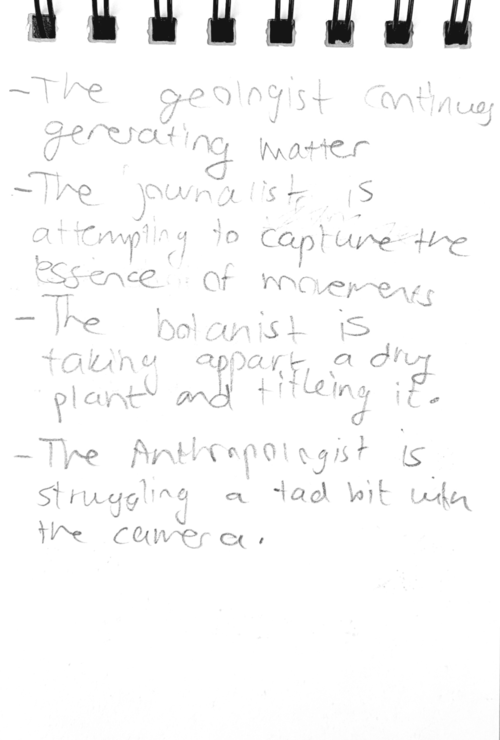 - The geologist continues
generating matter
- The journalist is
attempting to capture the
essence of movements
- The botanist is
taking appart a dry
plant and titleing it.
- The Anthropologist is
struggling a tad bit with
the camera.